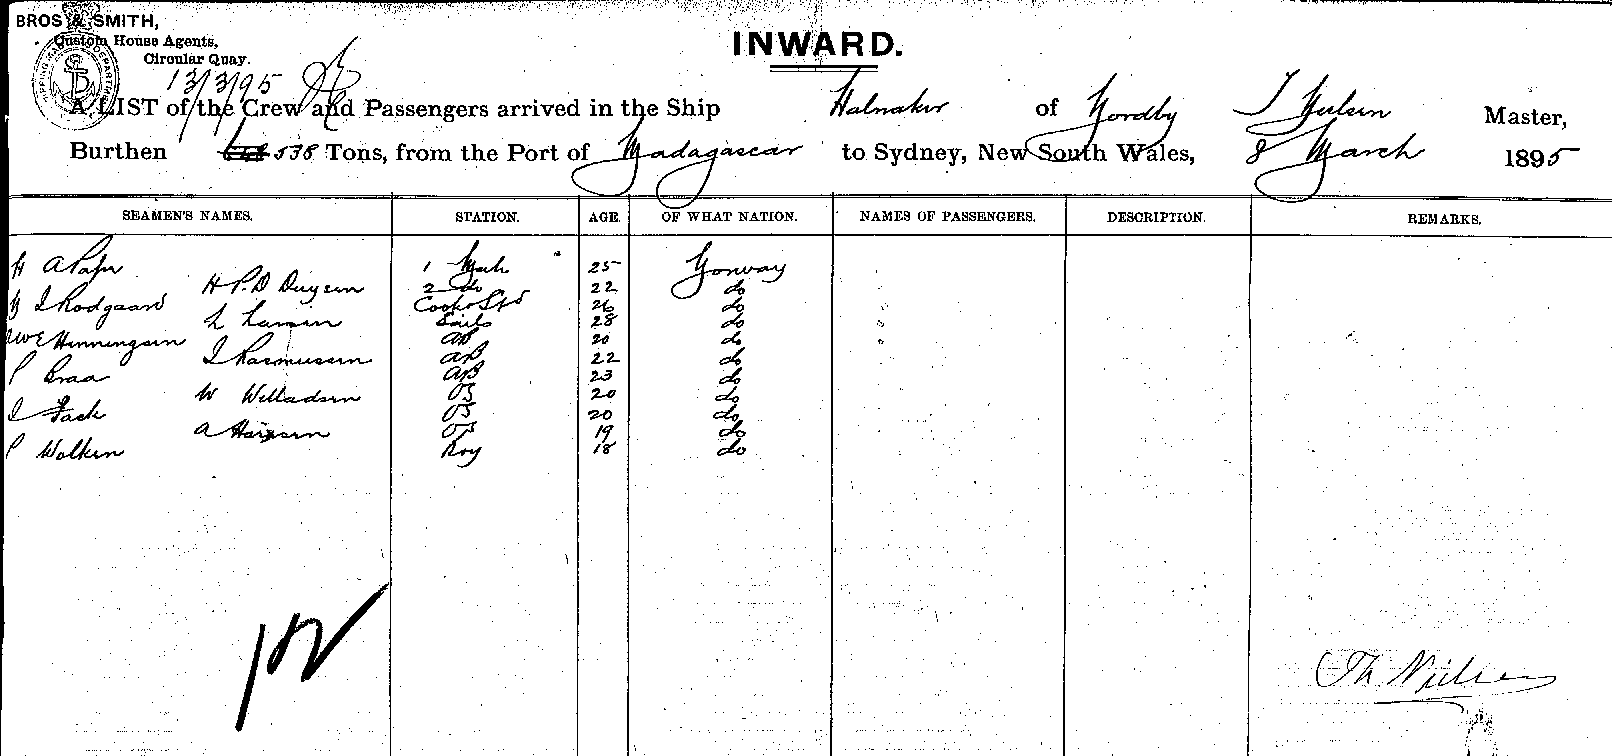 BROS & SMITH,
Custom House Agents,
Circular Quay.
13/3/95
INWARD.
A LIST of the Crew and Passengers arrived in the Ship Halnaker of Nordby T Nielsen Master,
Burthen 538 Tons, from the Port of Madagascar to Sydney, New South Wales, 8 March 1895
SEAMEN'S NAMES. STATION. AGE. OF WHAT NATION. NAMES OF PASSENGERS. DESCRIPTION. REMARKS.
H 1 Mate 25 Norway
H P.D Duysen 2 do 22 do
Rodgaard Cook & Std 26 do
L Larsen Sails 28 do
Henningsen AB 20 do
I Rasmussen AB 22 do
P Braa AB 23 do
W Willadsen OS 20 do
I Fack OS 20 do
A Hansen OS 19 do
P Wolken Boy 18 do
Th Nielsen